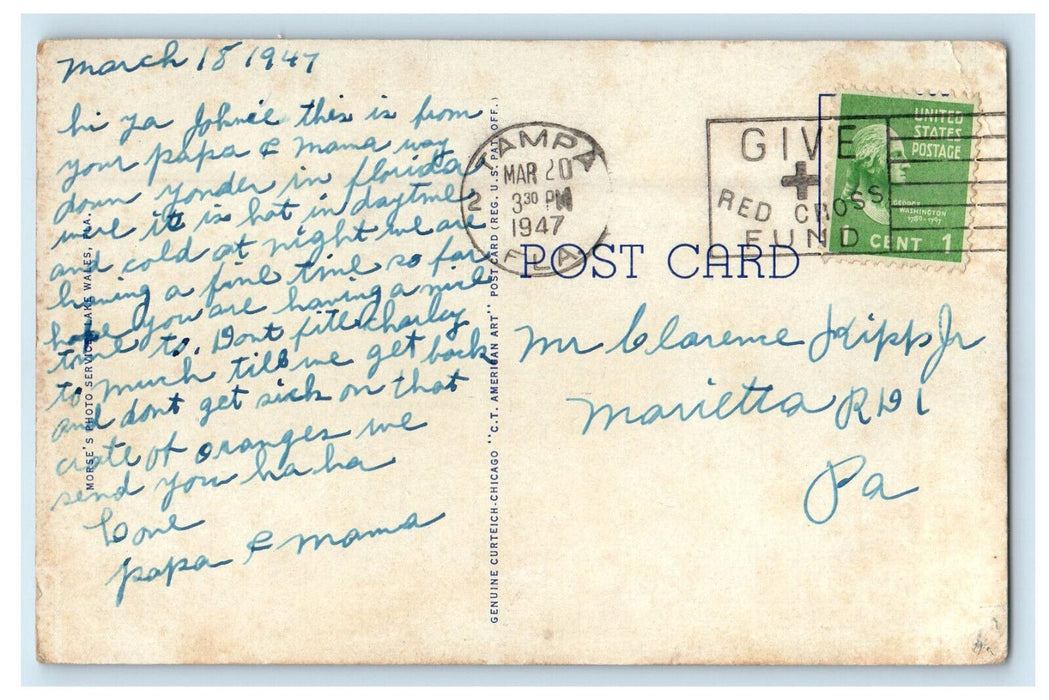 March 18 1947
hi ya Johnie this is from
your papa & mama way
down yonder in florida
were it is hot in daytime
and cold at night we are
having a fine time so far
hope you are having a nice
time to. Dont fite charley
to much till we get back
and dont get sick on that
crate of oranges we
send you ha ha
Love
papa & mama
MORSE'S PHOTO SERVICE, LAKE WALES, FLA.
GENUINE CURTEICH-CHICAGO "C.T. AMERICAN ART" POST CARD (REG. U.S. PAT. OFF.)
TAMPA
MAR 20
2
3 30 PM
1947
FLA
GIVE
RED CROSS
FUND
UNITED
STATES
POSTAGE
GEORGE
WASHINGTON
1789-1797
1 CENT 1
POST CARD
Mr Clarence Kipp Jr
Marietta R D 1
Pa